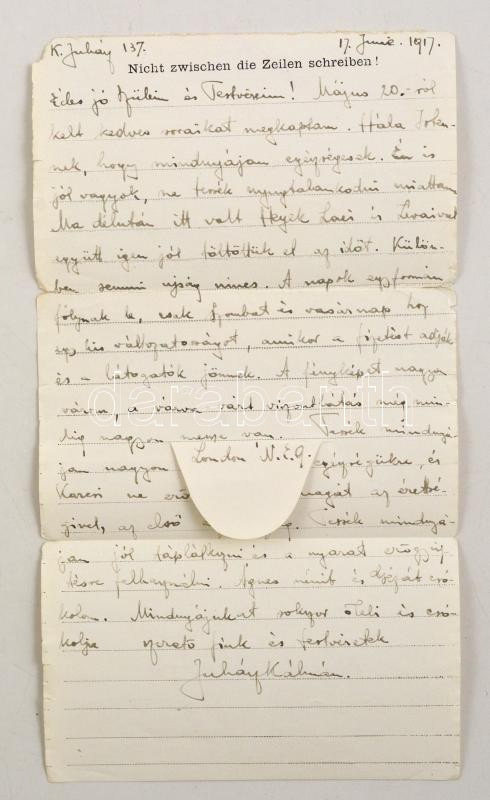 K. Juháy 137. 17. Junie. 1917.
Nicht zwischen die Zeilen schreiben!
Édes jó Szüleim és Testvéreim! Május 20.-ról
kelt kedves soraikat megkaptam. Hála Isten-
nek, hogy mindnyájan egészségesek. Én is
jól vagyok, ne tessék nyugtalankodni miattam.
Ma délután itt volt Hegek Laci is Levaival
együtt igen jól töltöttük el az időt. Külön-
ben semmi ujság nincs. A napok egyformán
folynak le, csak szombat és vasárnap hoz
egy kis változatosságot, amikor a fizetést adják
és a látogatók jönnek. A fényképet nagyon
várom, a várva várt viszontlátás még min-
dig nagyon messze van. Tessék mindnyá-
jan nagyon egészségükre, és
London N.E.g.
Karcsi ne magát az érettsé-
givel, az első Tessék mindnyá-
jan jól táplálkozni és a nyarat erőgyüj-
tésre felhasználni. Ágnes nénit és Józsát csó-
kolom. Mindnyájukat sokszor öleli és csó-
kolja szerető fiuk és testvéretek
Juháy Kálmán.
darabanth